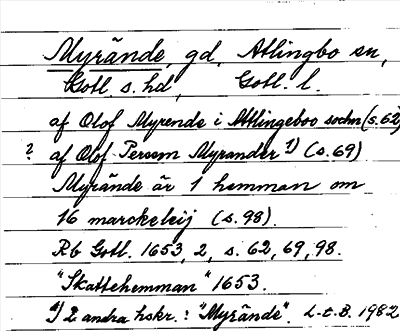 Myrände, gd, Atlingbo sn,
Gotl. s. hd, Gotl. l.
af Olof Myrende i Attlingeboo sochn (s. 62)
? af Olof Persson Myrander 1) (s. 69)
Myrände är 1 hemman om
16 marckeleij (s. 98).
Rb Gotl. 1653, 2, s. 62, 69, 98.
"Skattehemman" 1653.
1) I 2 andra hskr.: "Myrände". L-t. B. 1982